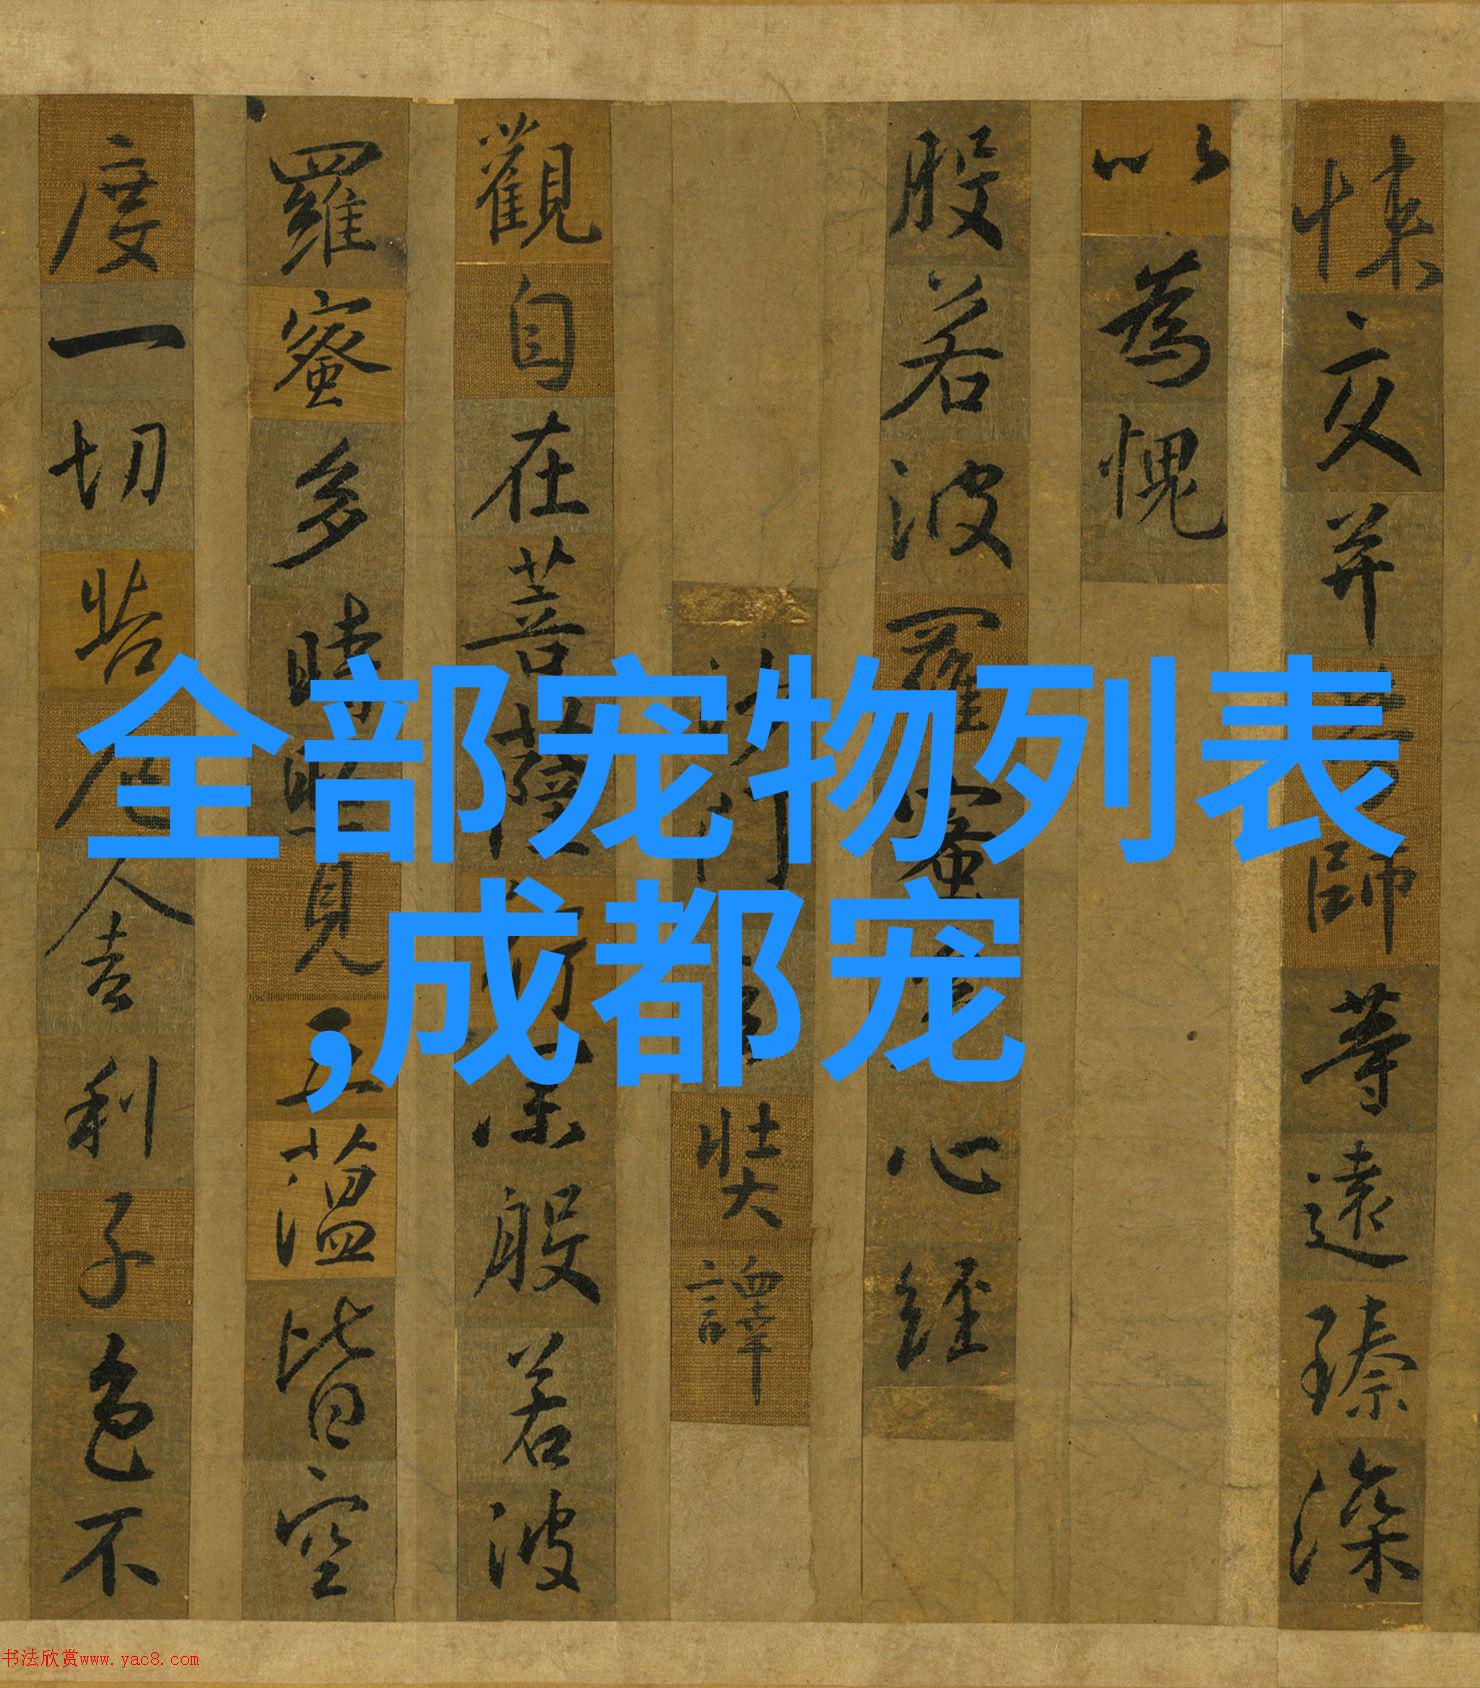 全部宠物列表
,成都宠
悚交并師等遠臻深
以為愧
般若波羅蜜多心經
沙門玄奘譯
觀自在菩薩行深般若波
羅蜜多時照見五蘊皆空
度一切苦厄舍利子色不
书法欣赏www.yac8.com